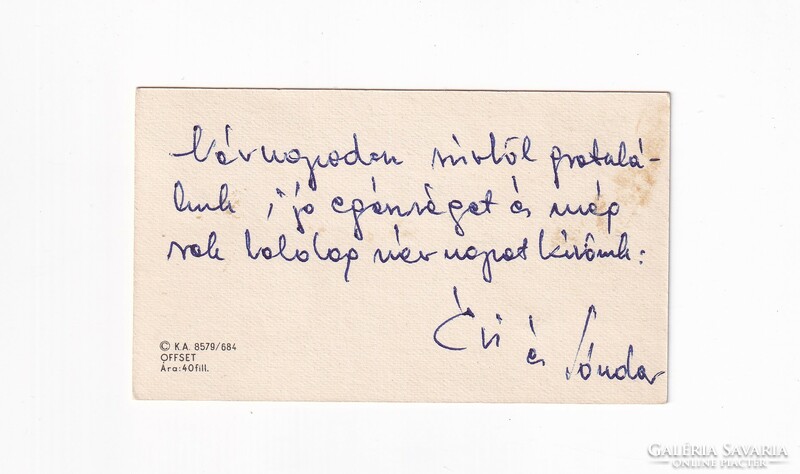 Névnapodon szivből gratulá-
lunk, jó egészséget és még
sok boldog névnapot kivánunk:
Évi és Sándor
© K.A. 8579/684
OFFSET
Ára: 40 fill.
GALÉRIA SAVARIA
ONLINE PIACTÉR